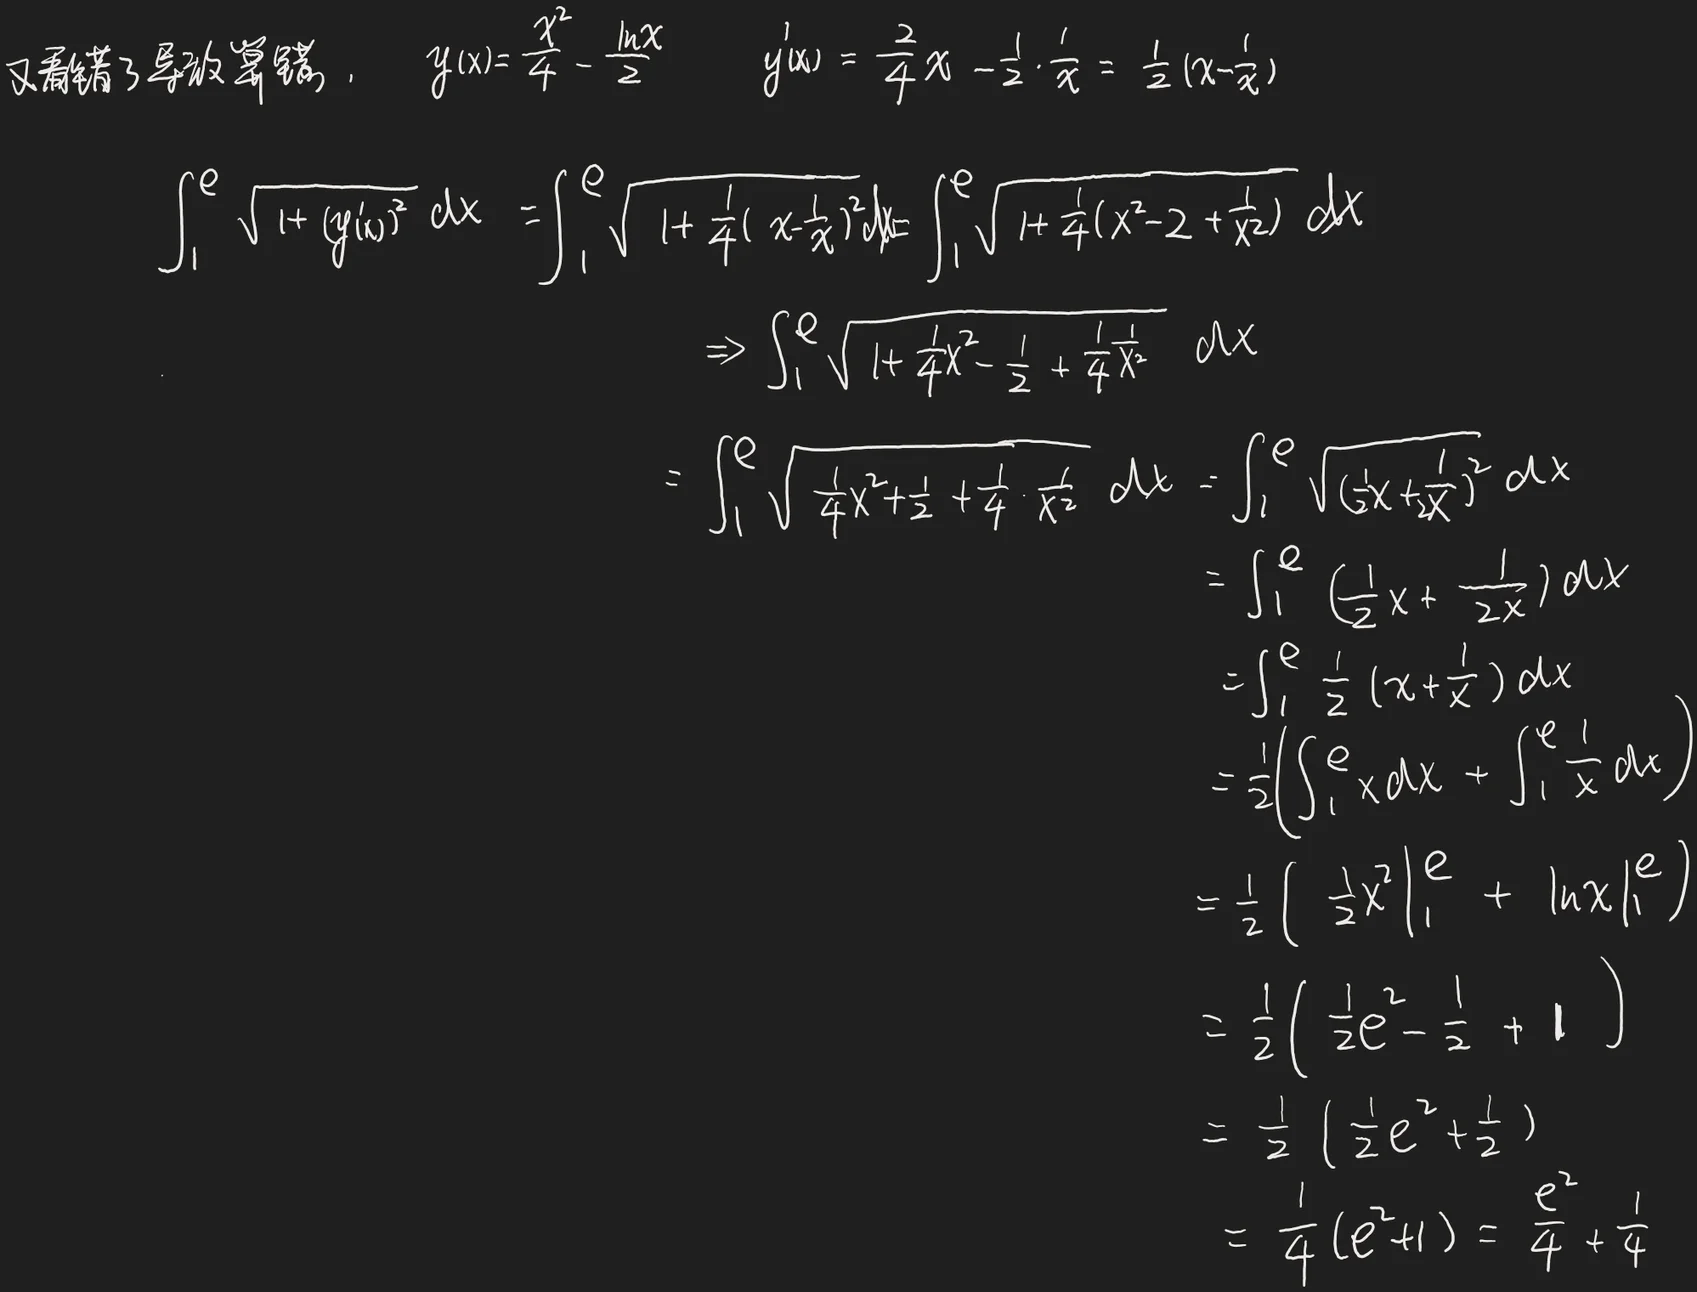 又看错了导致算错, y(x)= x²/4 - lnx/2 y'(x) = 2/4 x - 1/2 · 1/x = 1/2 (x-1/x)
∫₁^e √(1+(y'(x))²) dx = ∫₁^e √(1+1/4(x-1/x)²) dx = ∫₁^e √(1+1/4(x²-2+1/x²)) dx
⇒ ∫₁^e √(1+1/4x²-1/2+1/4 1/x²) dx
= ∫₁^e √(1/4x²+1/2+1/4·1/x²) dx = ∫₁^e √((1/2x+1/2x)²) dx
= ∫₁^e (1/2 x + 1/(2x)) dx
= ∫₁^e 1/2 (x+1/x) dx
= 1/2 (∫₁^e x dx + ∫₁^e 1/x dx)
= 1/2 ( 1/2x² |₁^e + lnx |₁^e )
= 1/2 ( 1/2e² - 1/2 + 1 )
= 1/2 ( 1/2e² + 1/2 )
= 1/4 (e²+1) = e²/4 + 1/4